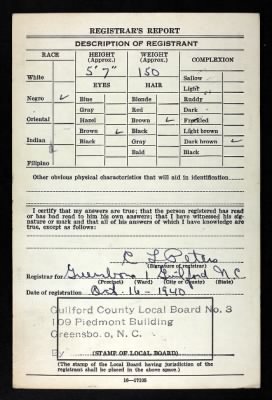 REGISTRAR'S REPORT
DESCRIPTION OF REGISTRANT
RACE HEIGHT (Approx.) WEIGHT (Approx.) COMPLEXION
5' 7" 150
White Sallow
EYES HAIR Light
Negro ✓ Blue Blonde Ruddy
Gray Red Dark
Oriental Hazel Brown ✓ Freckled
Brown ✓ Black Light brown
Indian Black Gray Dark brown ✓
Bald Black
Filipino
Other obvious physical characteristics that will aid in identification
I certify that my answers are true; that the person registered has read or has had read to him his own answers; that I have witnessed his signature or mark and that all of his answers of which I have knowledge are true, except as follows:
C L
(Signature of registrar)
Registrar for Greensboro 1 Guilford N.C.
(Precinct) (Ward) (City or County) (State)
Date of registration Oct-16-1940
Guilford County Local Board No. 3
109 Piedmont Building
Greensboro, N. C.
By
(STAMP OF LOCAL BOARD)
(The stamp of the Local Board having jurisdiction of the registrant shall be placed in the above space.)
16—17105